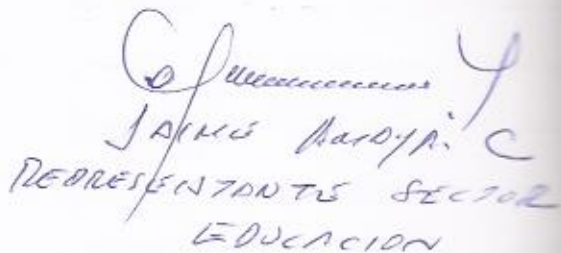 JAIME C
REPRESENTANTE SECTOR
EDUCACION